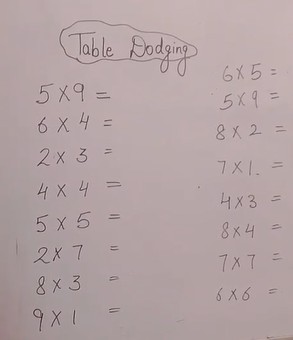 Table Dodging
5 × 9 =
6 × 4 =
2 × 3 =
4 × 4 =
5 × 5 =
2 × 7 =
8 × 3 =
9 × 1 =
6 × 5 =
5 × 9 =
8 × 2 =
7 × 1. =
4 × 3 =
8 × 4 =
7 × 7 =
6 × 6 =